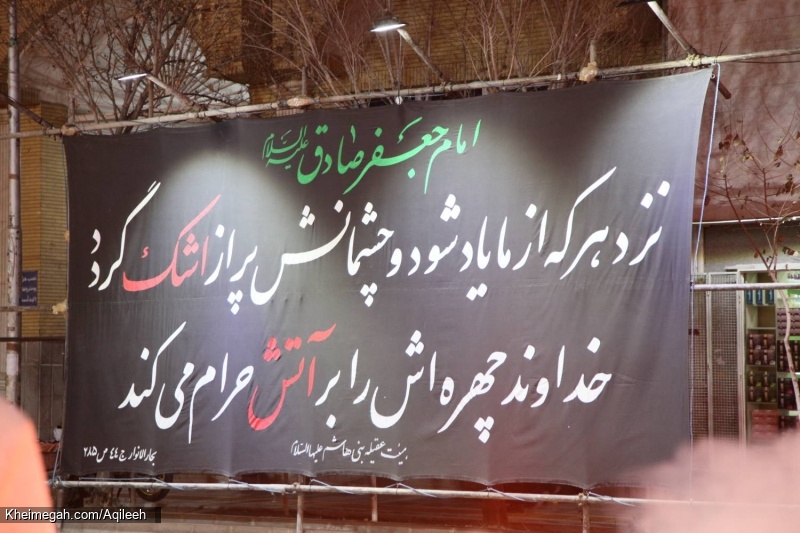 امام جعفر صادق علیه السلام
نزد هرکه از ما یاد شود و چشمانش پر از اشک گردد
خداوند چهره اش را بر آتش حرام می کند
هیئت عقیله بنی هاشم علیها السلام
بحارالانوار ج ۴۴ ص ۲۸۵
Kheimegah.com/Aqileeh